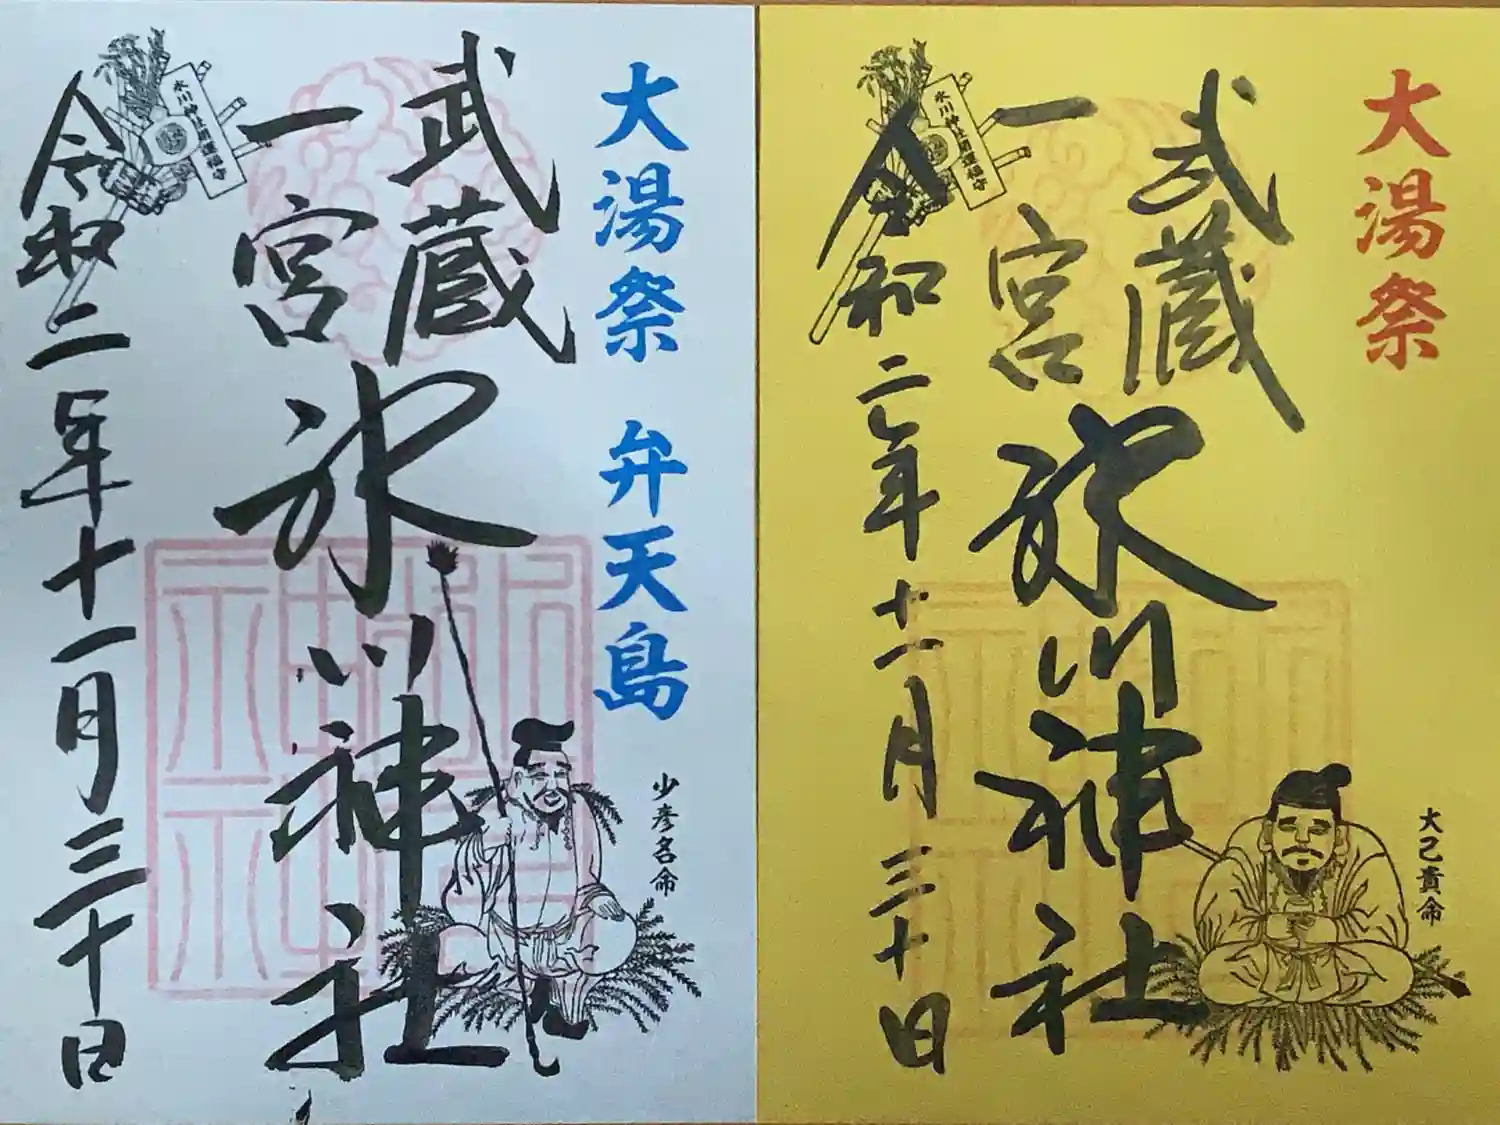 大湯祭 弁天島
武蔵
一宮
氷川神社
令和二年十一月三十日
氷川神社開運福守
少彦名命
大湯祭
武蔵
一宮
氷川神社
令和二年十一月三十日
氷川神社開運福守
大己貴命